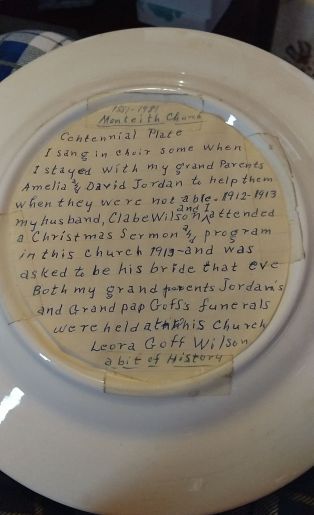 1881-1981
Monteith Church
Centennial Plate
I sang in choir some when
I stayed with my grand Parents
Amelia & David Jordan to help them
when they were not able. 1912-1913
and I
my husband, Clabe Wilson attended
a Christmas Sermon & program
in this church 1913 - and was
asked to be his bride that eve
Both my grand parents Jordan's
and Grand pap Goff's funerals
were held at this Church
Leora Goff Wilson
a bit of History